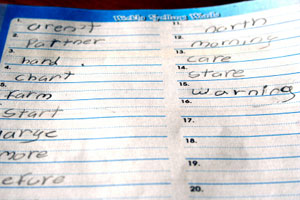 Weekly Spelling Words
1. aren't
2. Partner
3. hard
4. chart
5. farm
start
large
more
before
11. north
12. morning
13. care
14. stare
15. warning
16.
17.
18.
19.
20.